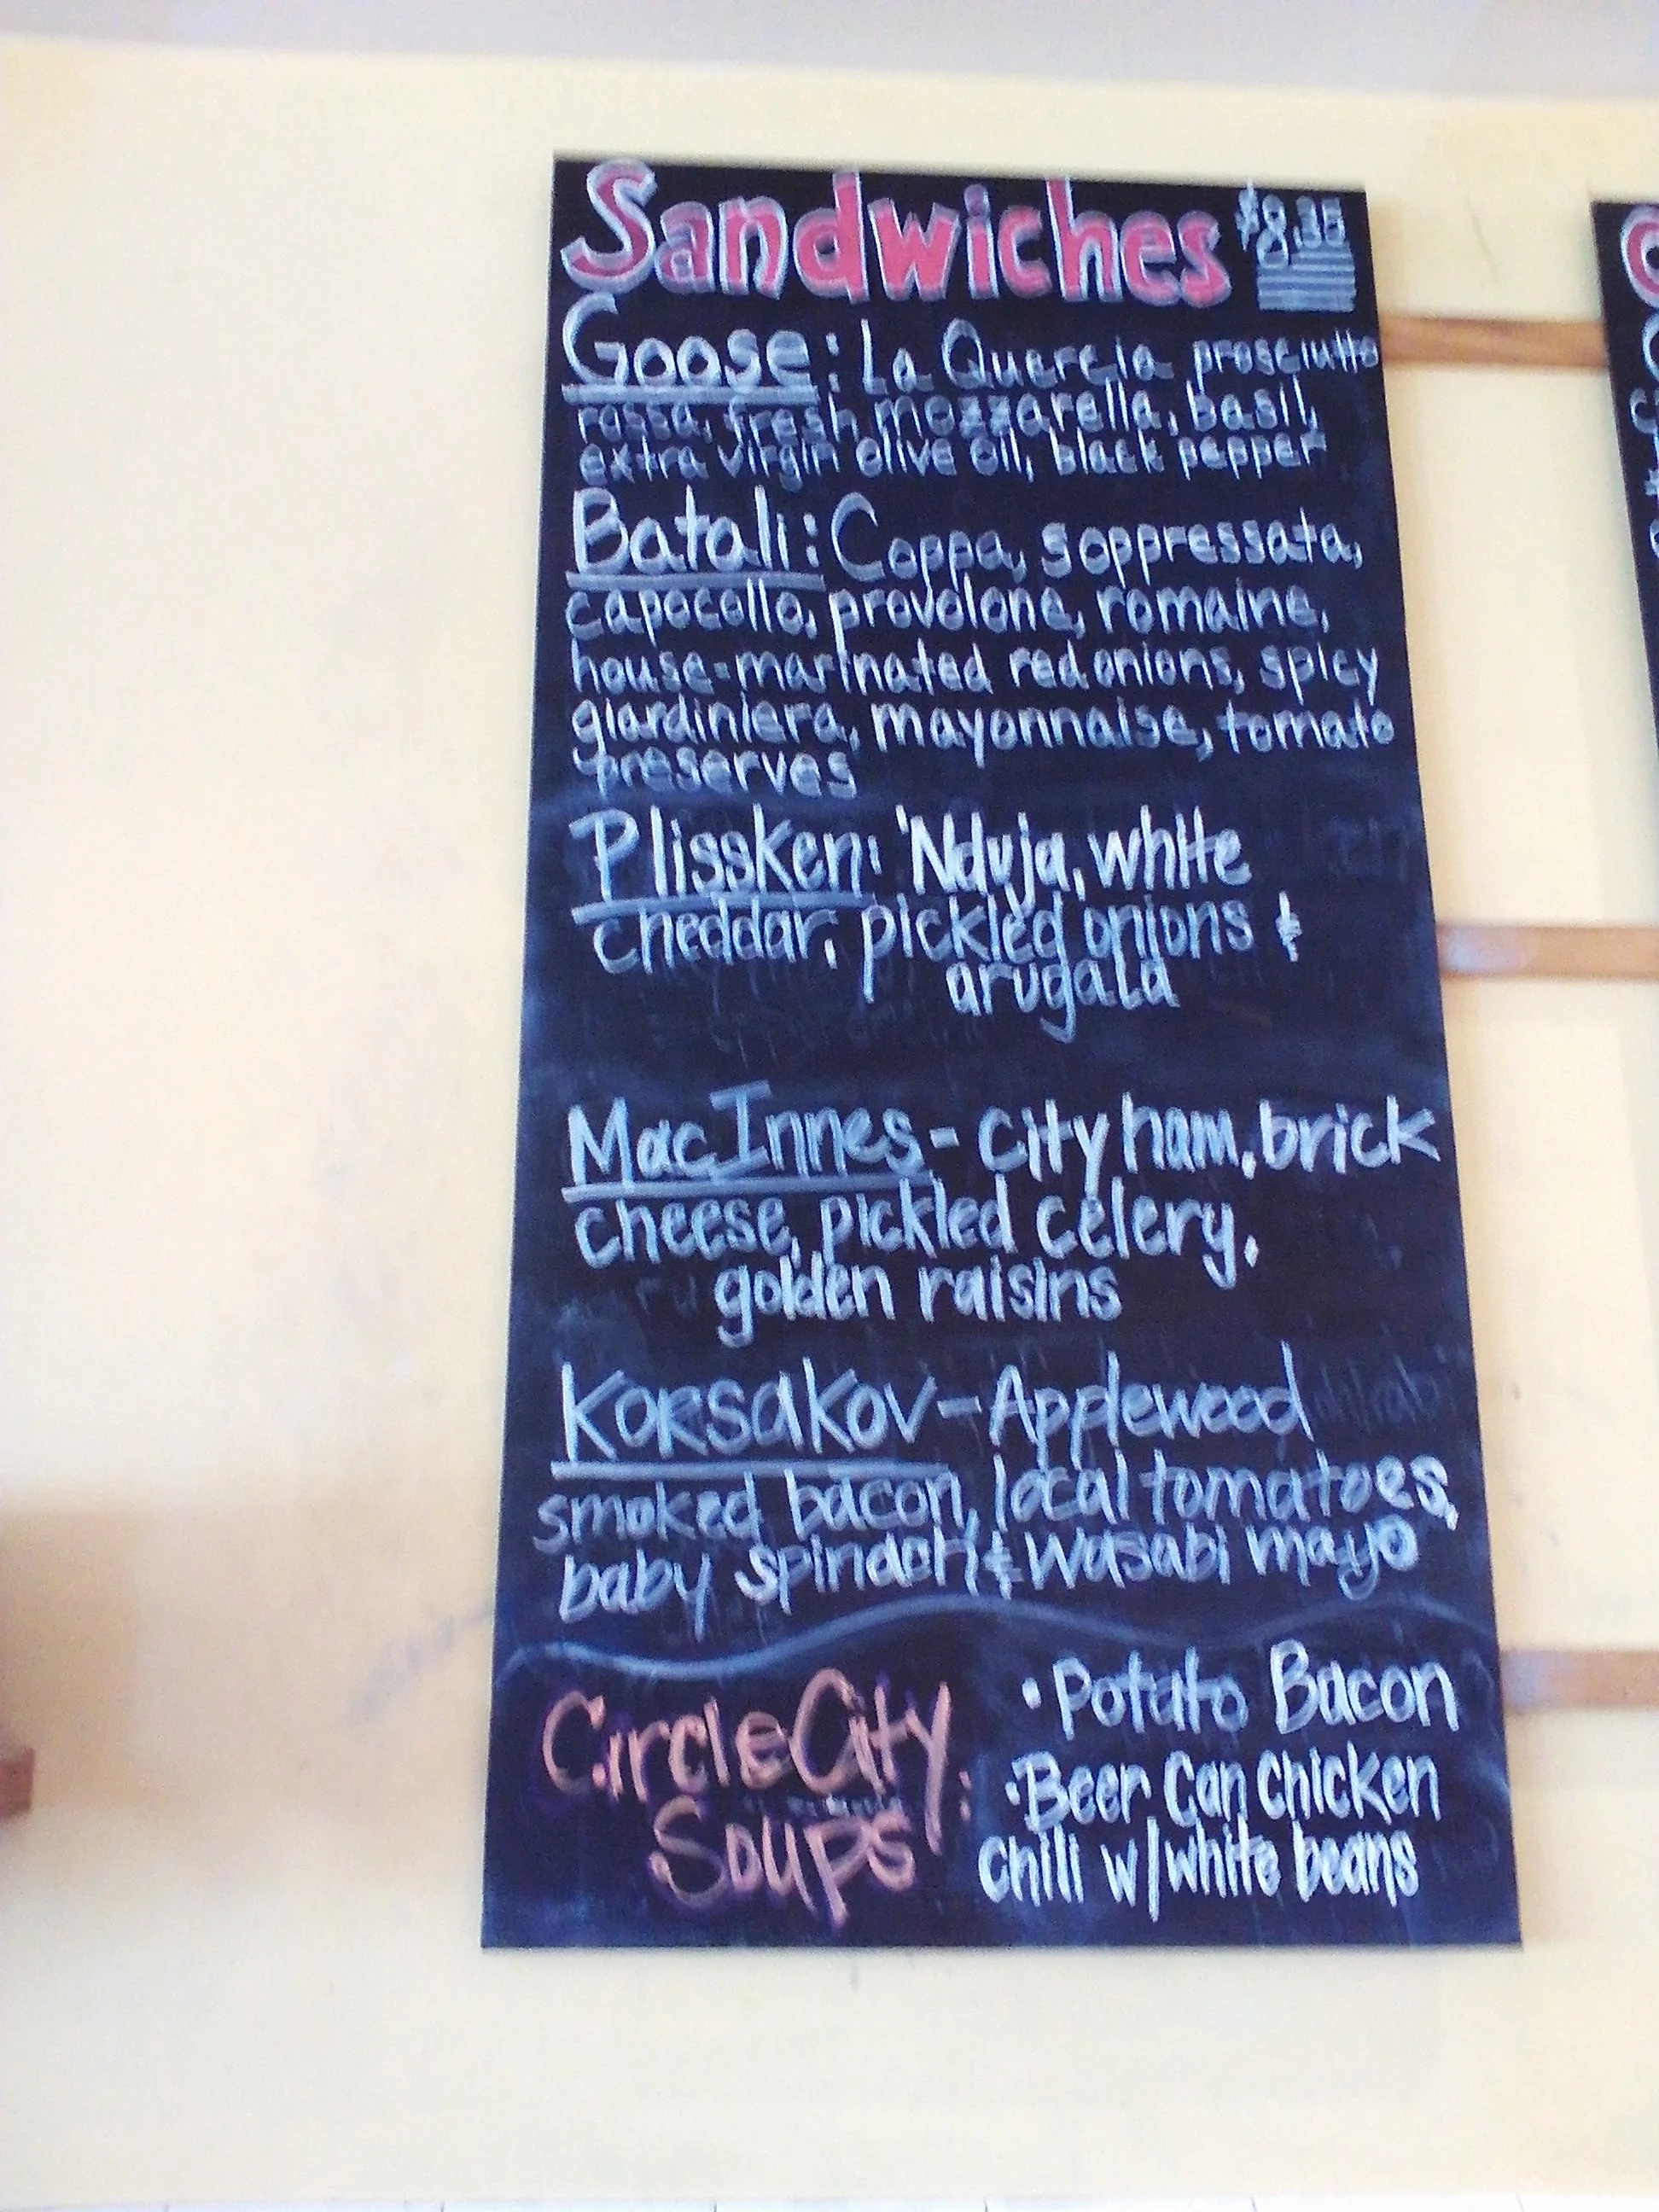 Sandwiches $8.35
Goose: La Quercia prosciutto
rossa, fresh mozzarella, basil,
extra virgin olive oil, black pepper
Batali: Coppa, soppressata,
capocollo, provolone, romaine,
house-marinated red onions, spicy
giardiniera, mayonnaise, tomato
preserves
Plissken: 'Nduja, white
cheddar, pickled onions &
arugala
MacInnes - City ham, brick
cheese, pickled celery,
golden raisins
Korsakov - Applewood
smoked bacon, local tomatoes,
baby spinach & wasabi mayo
Circle City
Soups:
• Potato Bacon
• Beer Can Chicken
Chili w/white beans